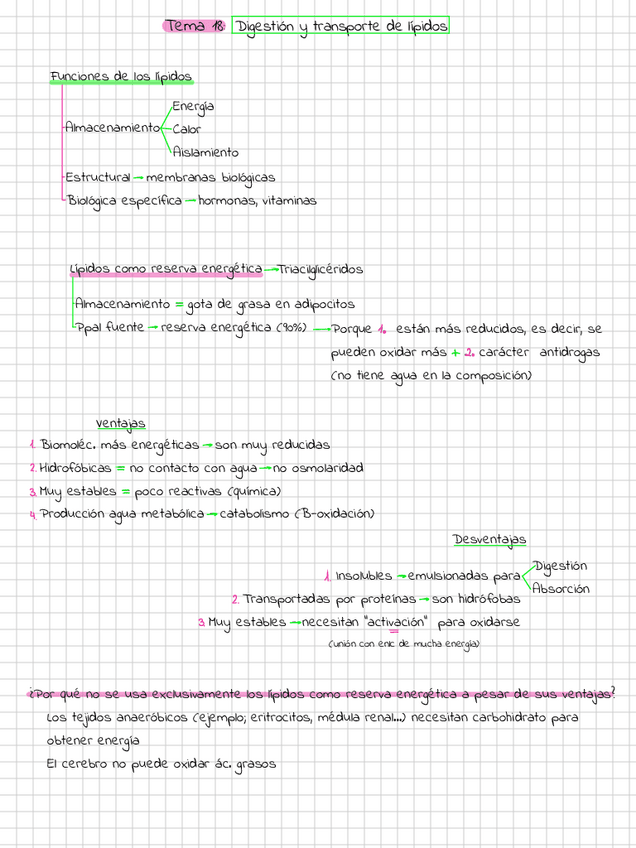 Tema 18 Digestión y transporte de lípidos
Funciones de los lípidos
Energía
Almacenamiento Calor
Aislamiento
Estructural → membranas biológicas
Biológica específica → hormonas, vitaminas
Lípidos como reserva energética → Triacilglicéridos
Almacenamiento = gota de grasa en adipocitos
Ppal fuente → reserva energética (90%) → Porque 1. están más reducidos, es decir, se
pueden oxidar más + 2. carácter antidrogas
(no tiene agua en la composición)
Ventajas
1. Biomoléc. más energéticas → son muy reducidas
2. Hidrofóbicas = no contacto con agua → no osmolaridad
3. Muy estables = poco reactivas (química)
4. Producción agua metabólica → catabolismo (B-oxidación)
Desventajas
Digestión
1. Insolubles → emulsionadas para
Absorción
2. Transportadas por proteínas → son hidrófobas
3. Muy estables → necesitan "activación" para oxidarse
(unión con enlc de mucha energía)
¿Por qué no se usa exclusivamente los lípidos como reserva energética a pesar de sus ventajas?
Los tejidos anaeróbicos (ejemplo; eritrocitos, médula renal...) necesitan carbohidrato para
obtener energía
El cerebro no puede oxidar ác. grasos